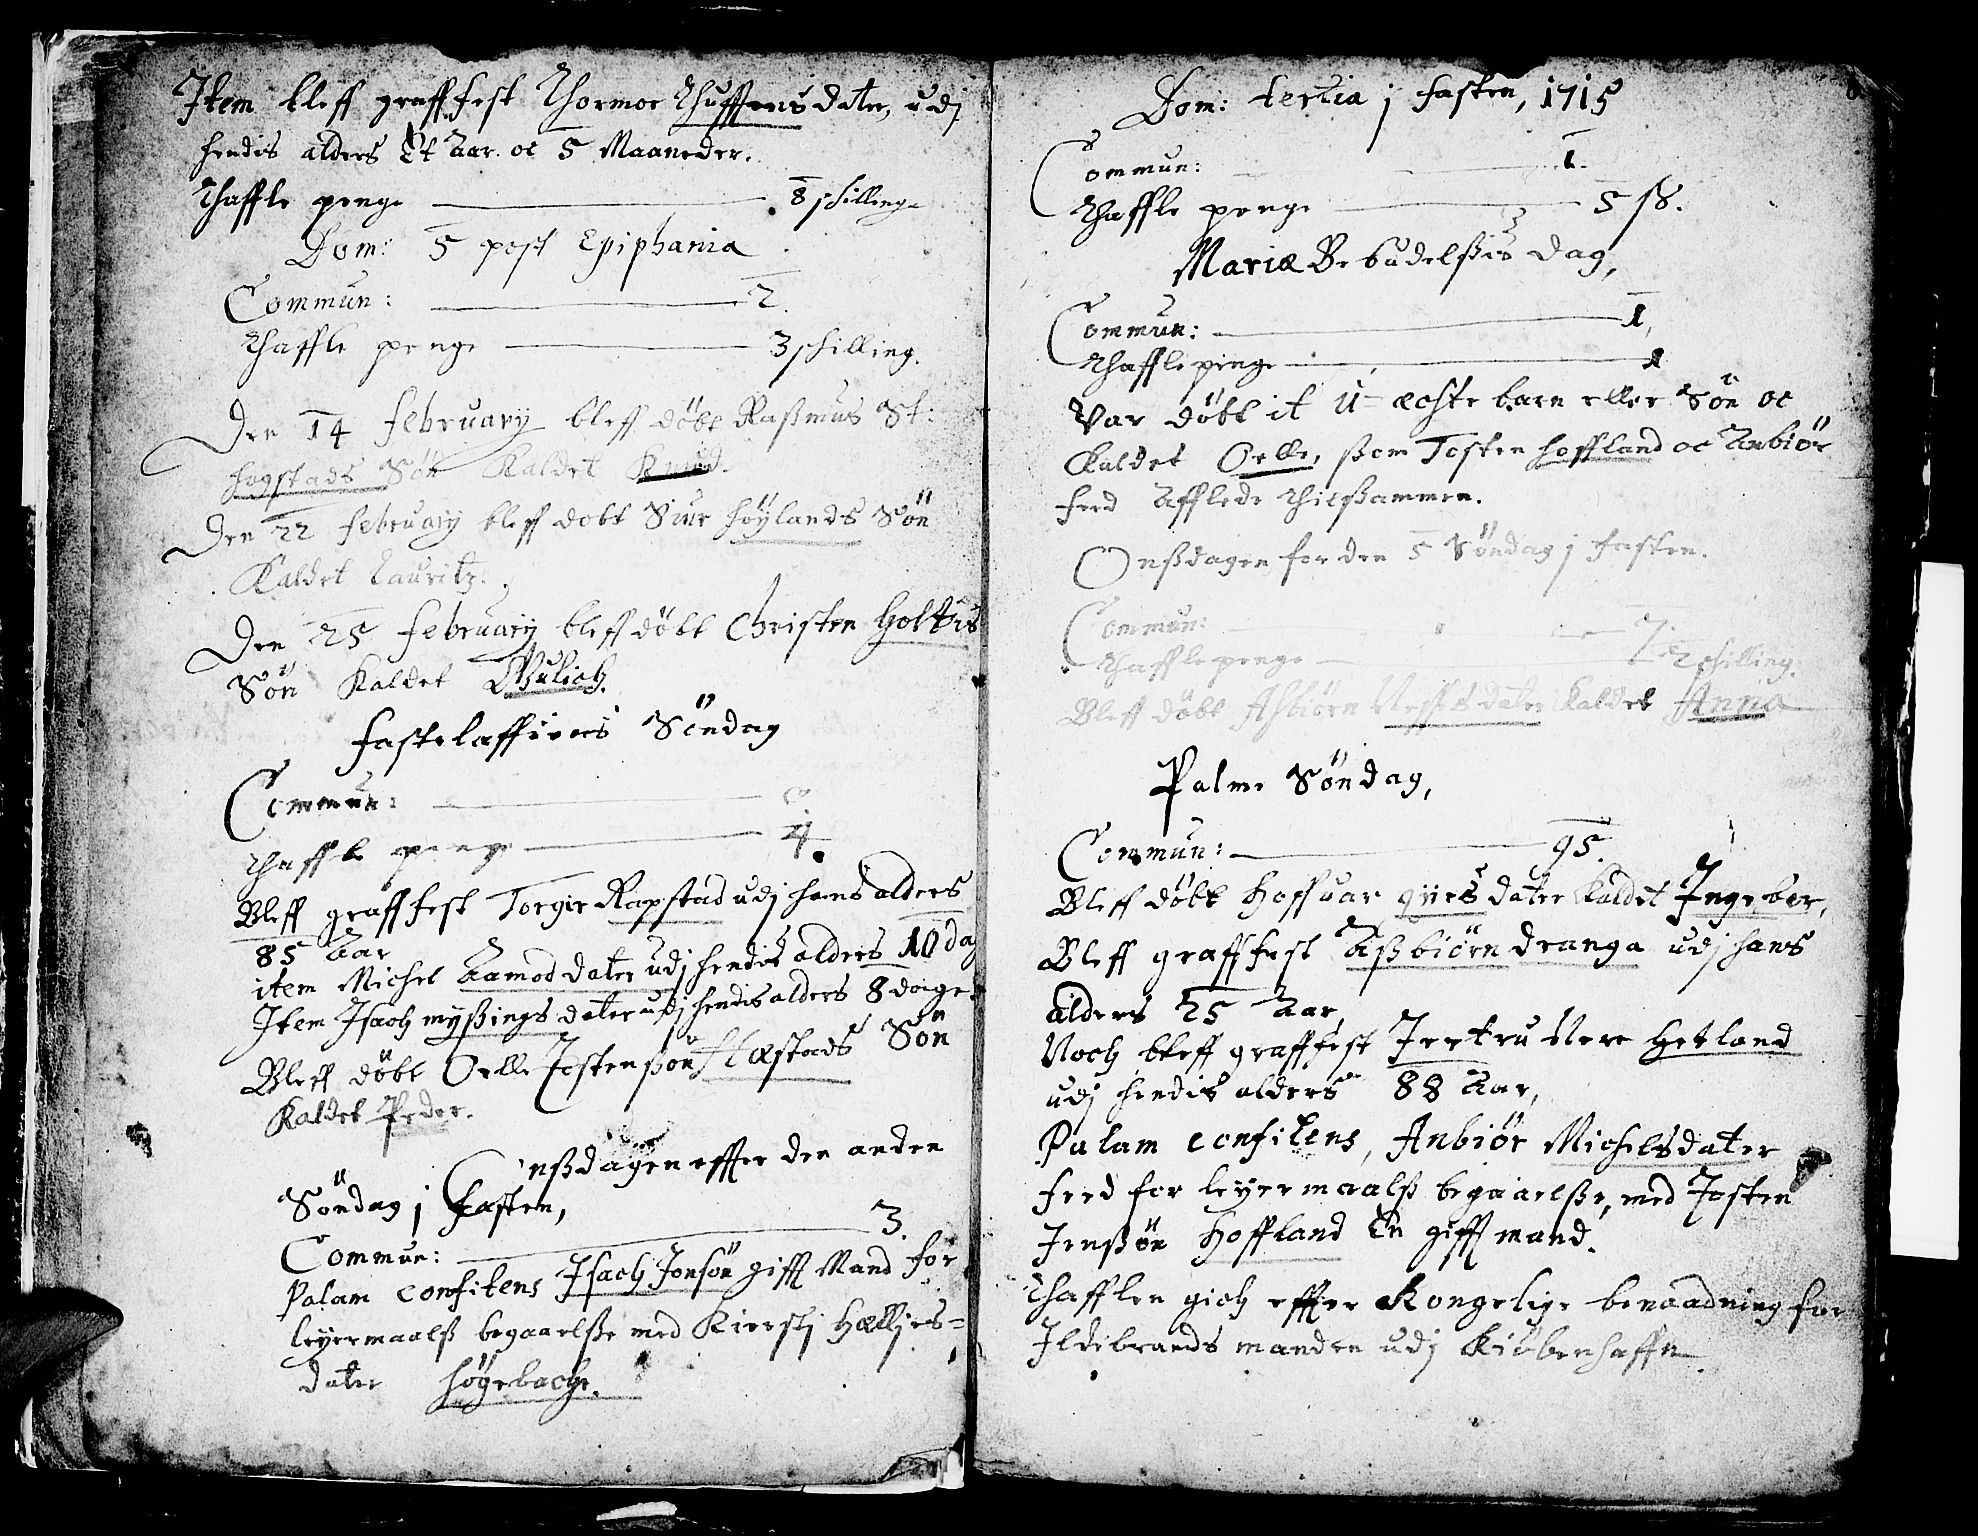 Item bleff graffæst Thormoe Thuffteens dater, udj
hendis alders Et Aar. oc 5 Maaneder.
Thaffle penge 8 schilling
Dom: 5 post Epiphania
Commun: 2.
Thaffle penge 3 schilling.
Den 14 february bleff döbt Raßmus St:
fogstads Sön Kaldet Knud.
Den 22 february bleff dobt Siur höylands Sön
Kaldet Lauritz.
Den 25 february bleff döbt Christen Holtes
Sön Kaldet Gulich.
fastelaffvens Söndag
Commun: 
Thaffle penge 4
Bleff graffest Torgier Rapstad udj hans alders
85 Aar
item Michel Aamod dater udj hendis alders 10 dag
Item Isach myßings dater udj hendis alders 8 dage.
Bleff döbt Oelle Jostensßön Flæstads Sön
Kaldet Peder.
Onßdagen effter den anden
Söndag j fasten,
Commun: 3.
Palam confitens Isach Jonsön gifft Mand for
leyermaalß begaaelße med Kierstj Hælljes-
dater högebache.
Dom: tertia j fasten, 1715
Commun: 1.
Thaffle penge 5 ß.
Mariæ Bebudelßis dag,
Commun: 1,
Thaffle penge 1
Var döbt it U-æchte barn eller Sön oc
Kaldet Oelle, ßom Josten hoffland oc Anbiör
feed Afflede Thilßammen.
Onßdagen for den 5 Söndag j fasten.
Commun: 7.
Thaffle penge 2 schilling.
Bleff döbt Asbiörn Neskes dater Kaldet Anna
Palme Söndag,
Commun: 95.
Bleff döbt Hoffuar giies dater Kaldet Ingebor,
Bleff graffest Aßbiörn dranga udj hans
alders 25 Aar,
Noch bleff graffest Jertru Nere Hetland
udj hendis alders 88 Aar,
Palam confitens, Anbiör Michelsdater
feed for leyermaalß begaaelße, med Josten
Jenßön Hoffland En gifft mand.
Thafflen gich effter Kongelige benaadning for
Ildebrands manden udj Kiöbenhaffn